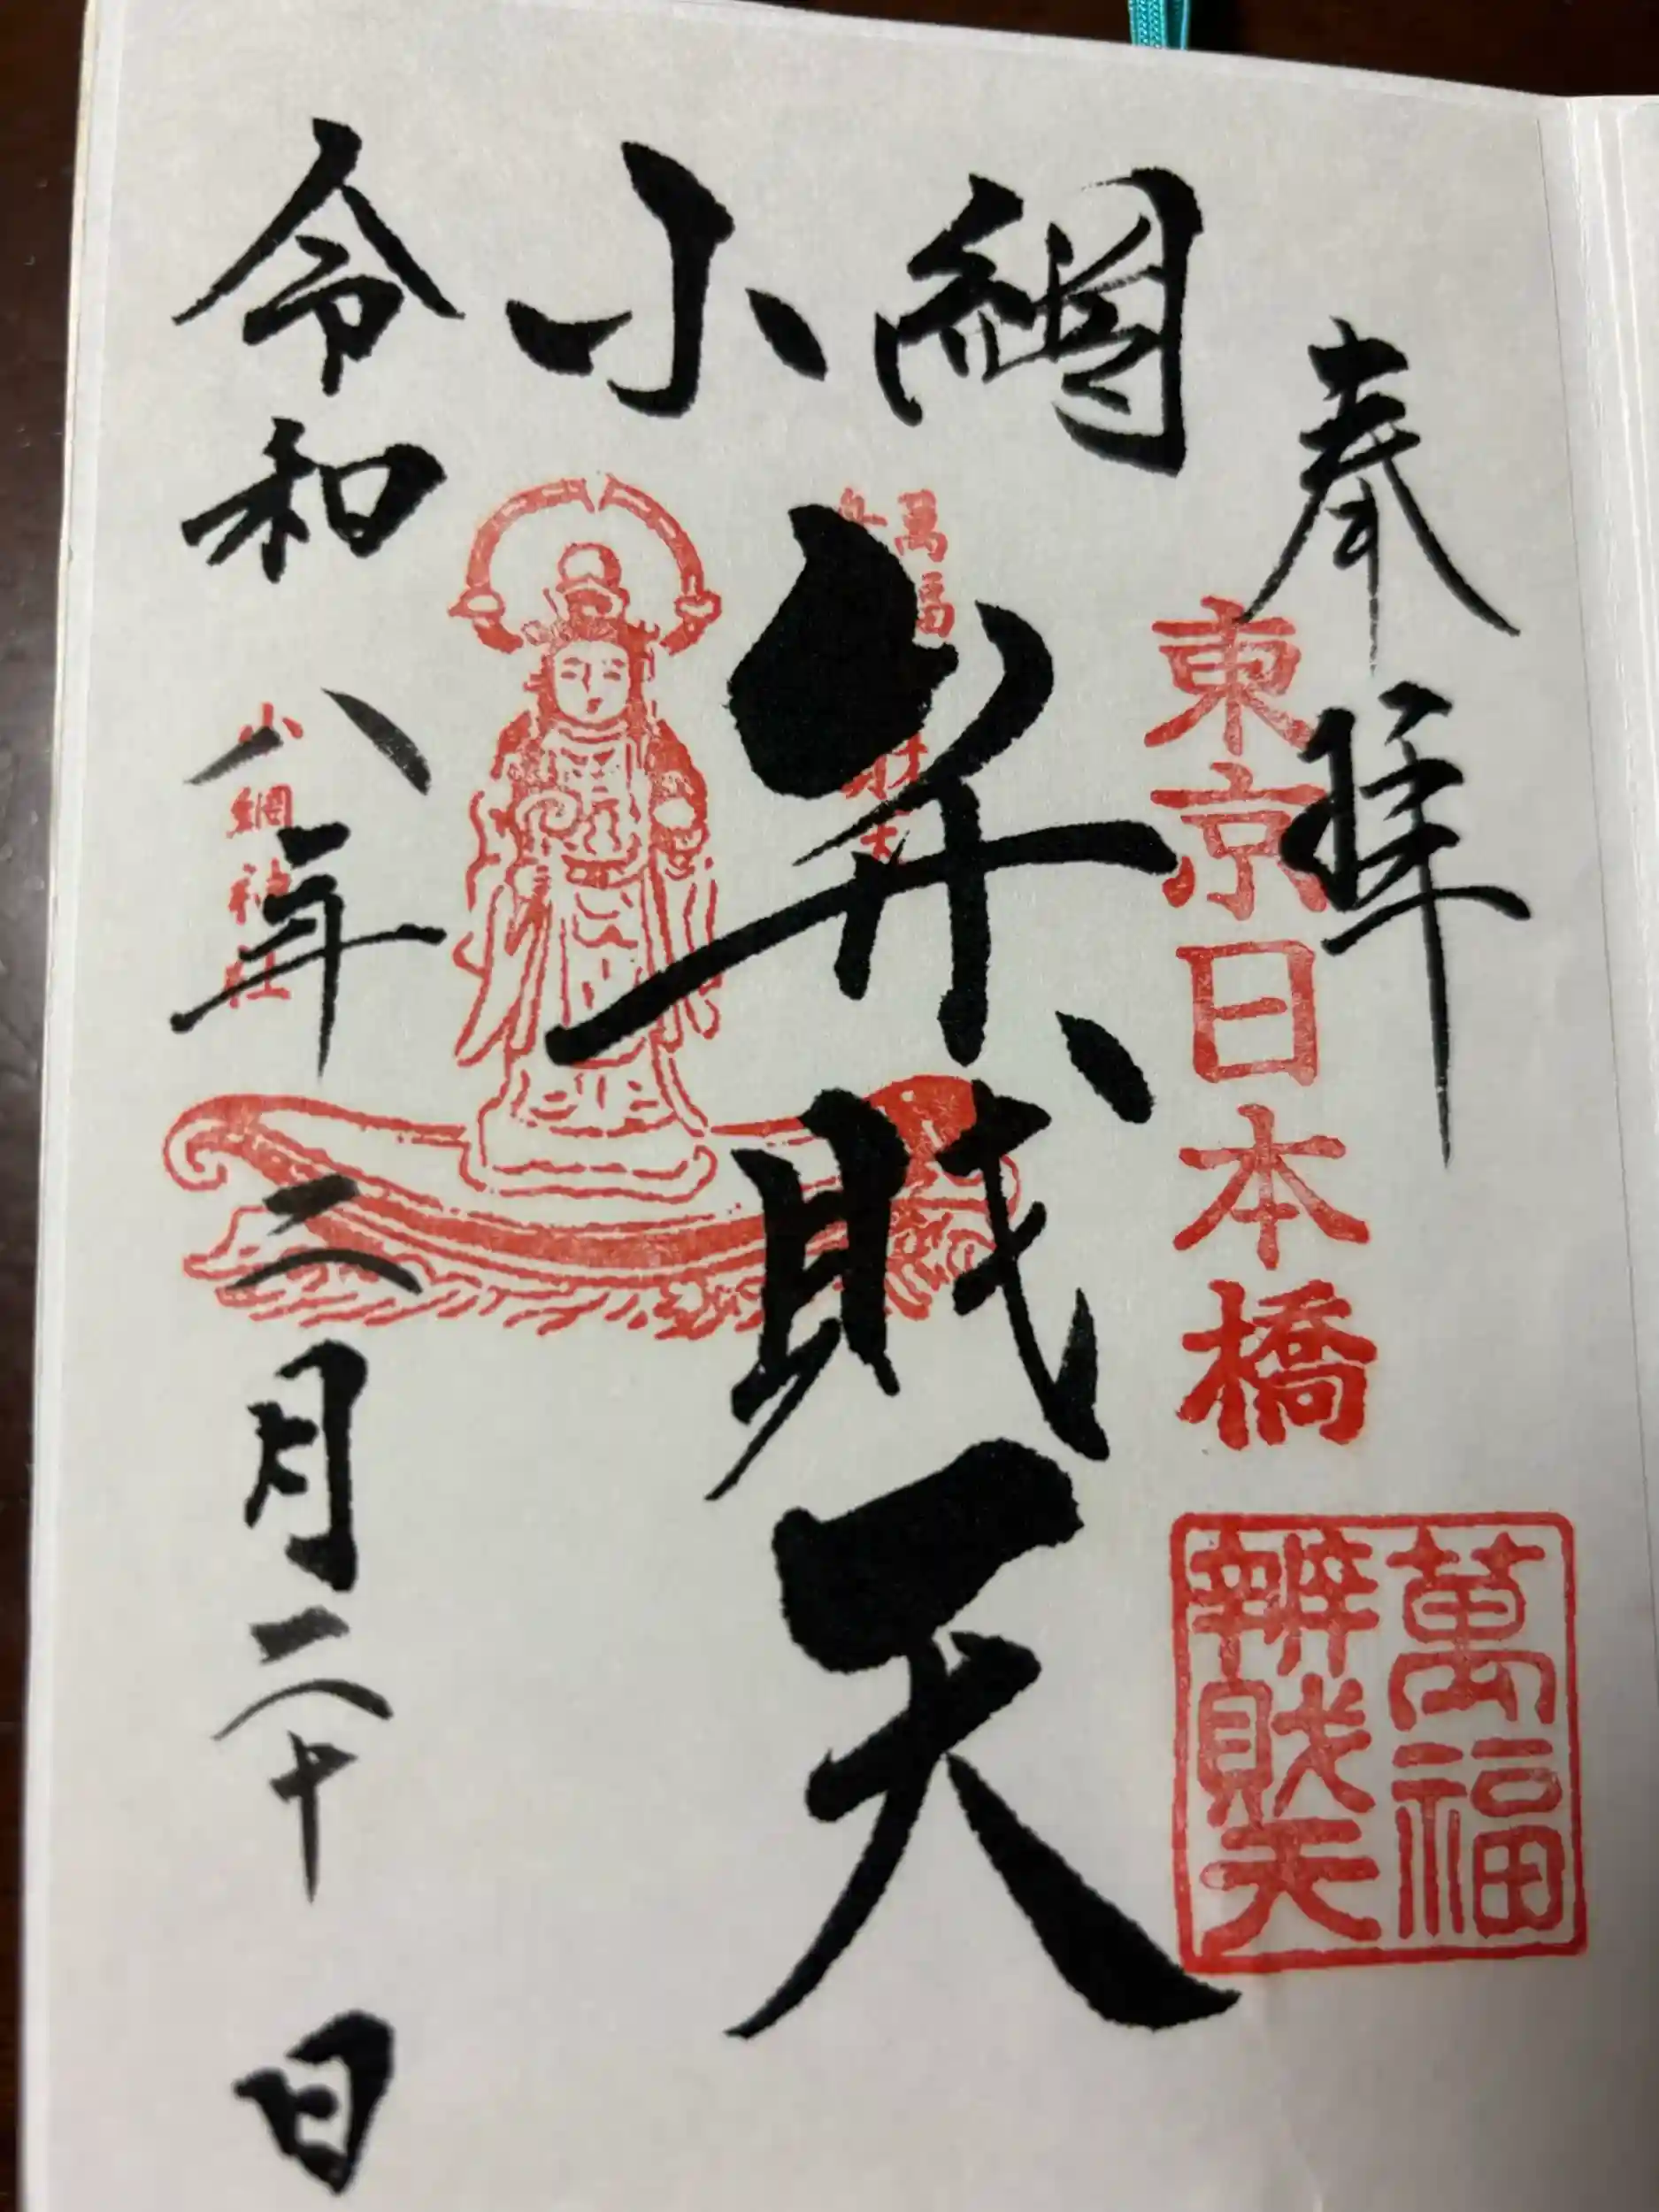 奉拝
東京日本橋
萬福
辨財天
小網
弁財天
萬福
小網神社
令和八年二月二十日